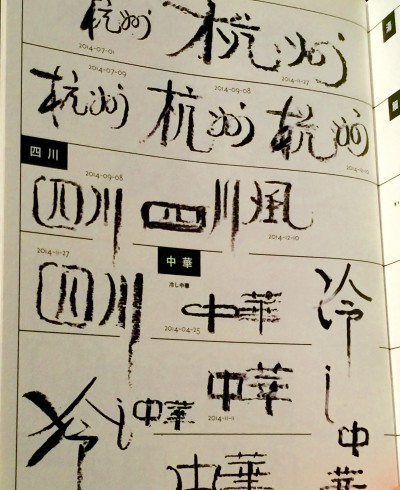 杭州 杭州
2014-07-01
2014-11-27
2014-07-09
2014-09-08
杭州 杭州 杭州
四川
2014-09-08
四川 四川風
2014-12-10
2014-11-27
四川
中華
冷し中華
2014-04-25
中華
冷し中華
中華
2014-11-11
冷し中華
中華